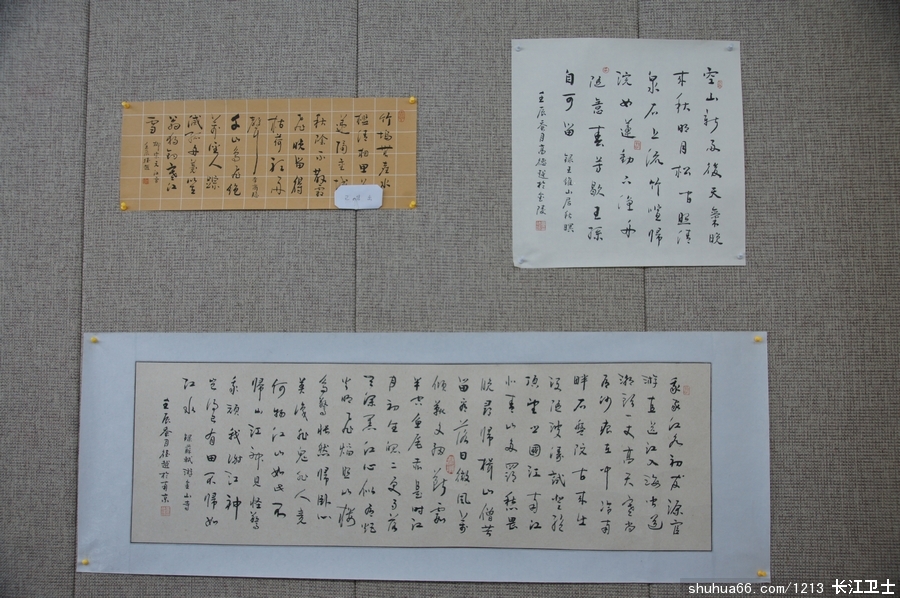 竹坞无尘水
槛清相思迢
递隔重城
秋阴不散霜
飞晚留得
枯荷听雨
声
千山鸟飞绝
万径人踪
灭孤舟蓑笠
翁独钓寒江
雪
空山新雨后天气晚
来秋明月松间照清
泉石上流竹喧归
浣女莲动下渔舟
随意春芳歇王孙
自可留
录王维山居秋暝
壬辰春月高德超于金陵
我家江水初发源宦
游直送江入海闻道
潮头一丈高天寒尚
有沙痕在中泠南
畔石盘陀古来出
没随涛波试登绝
顶望乡国江南江
北青山多羁愁畏
晚寻归楫山僧苦
留看落日微风万
顷靴文细断霞
半空鱼尾赤是时江
月初生魄二更月落
天深黑江心似有炬
火明飞焰照山栖
鸟惊怅然归卧心
莫识非鬼非人竟
何物江山如此不
归山江神见怪惊
我顽我谢江神
岂得已有田不归如
江水
录苏轼游金山寺
壬辰春月德超于南京
shuhua66.com/1213 长江卫士